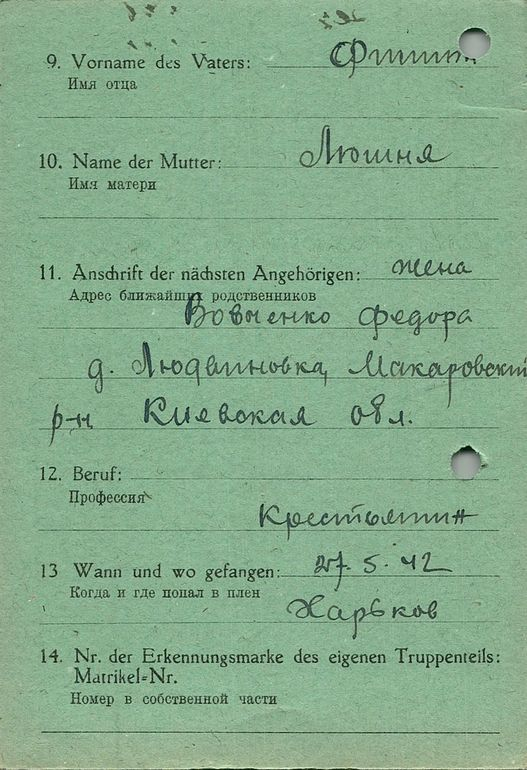 9. Vorname des Vaters:
Имя отца
10. Name der Mutter: Люшня
Имя матери
11. Anschrift der nächsten Angehörigen: жена
Адрес ближайших родственников
Вовченко Федора
д. Людвиновка, Макаровский
р-н Киевская обл.
12. Beruf:
Профессия
Крестьянин
13 Wann und wo gefangen: 27. 5. 42
Когда и где попал в плен
Харьков
14. Nr. der Erkennungsmarke des eigenen Truppenteils:
Matrikel=Nr.
Номер в собственной части